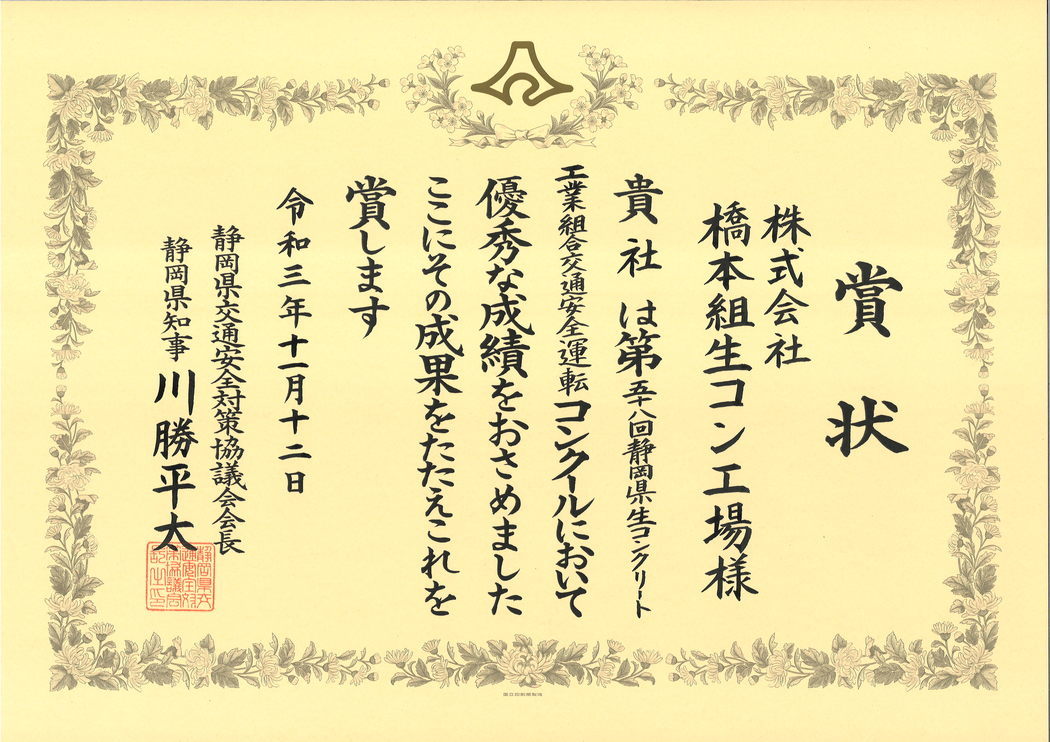 賞状
株式会社
橋本組生コン工場様
貴社は第五十八回静岡県生コンクリート
工業組合交通安全運転コンクールにおいて
優秀な成績をおさめました
ここにその成果をたたえこれを
賞します
令和三年十一月十二日
静岡県交通安全対策協議会会長
静岡県知事 川勝平太